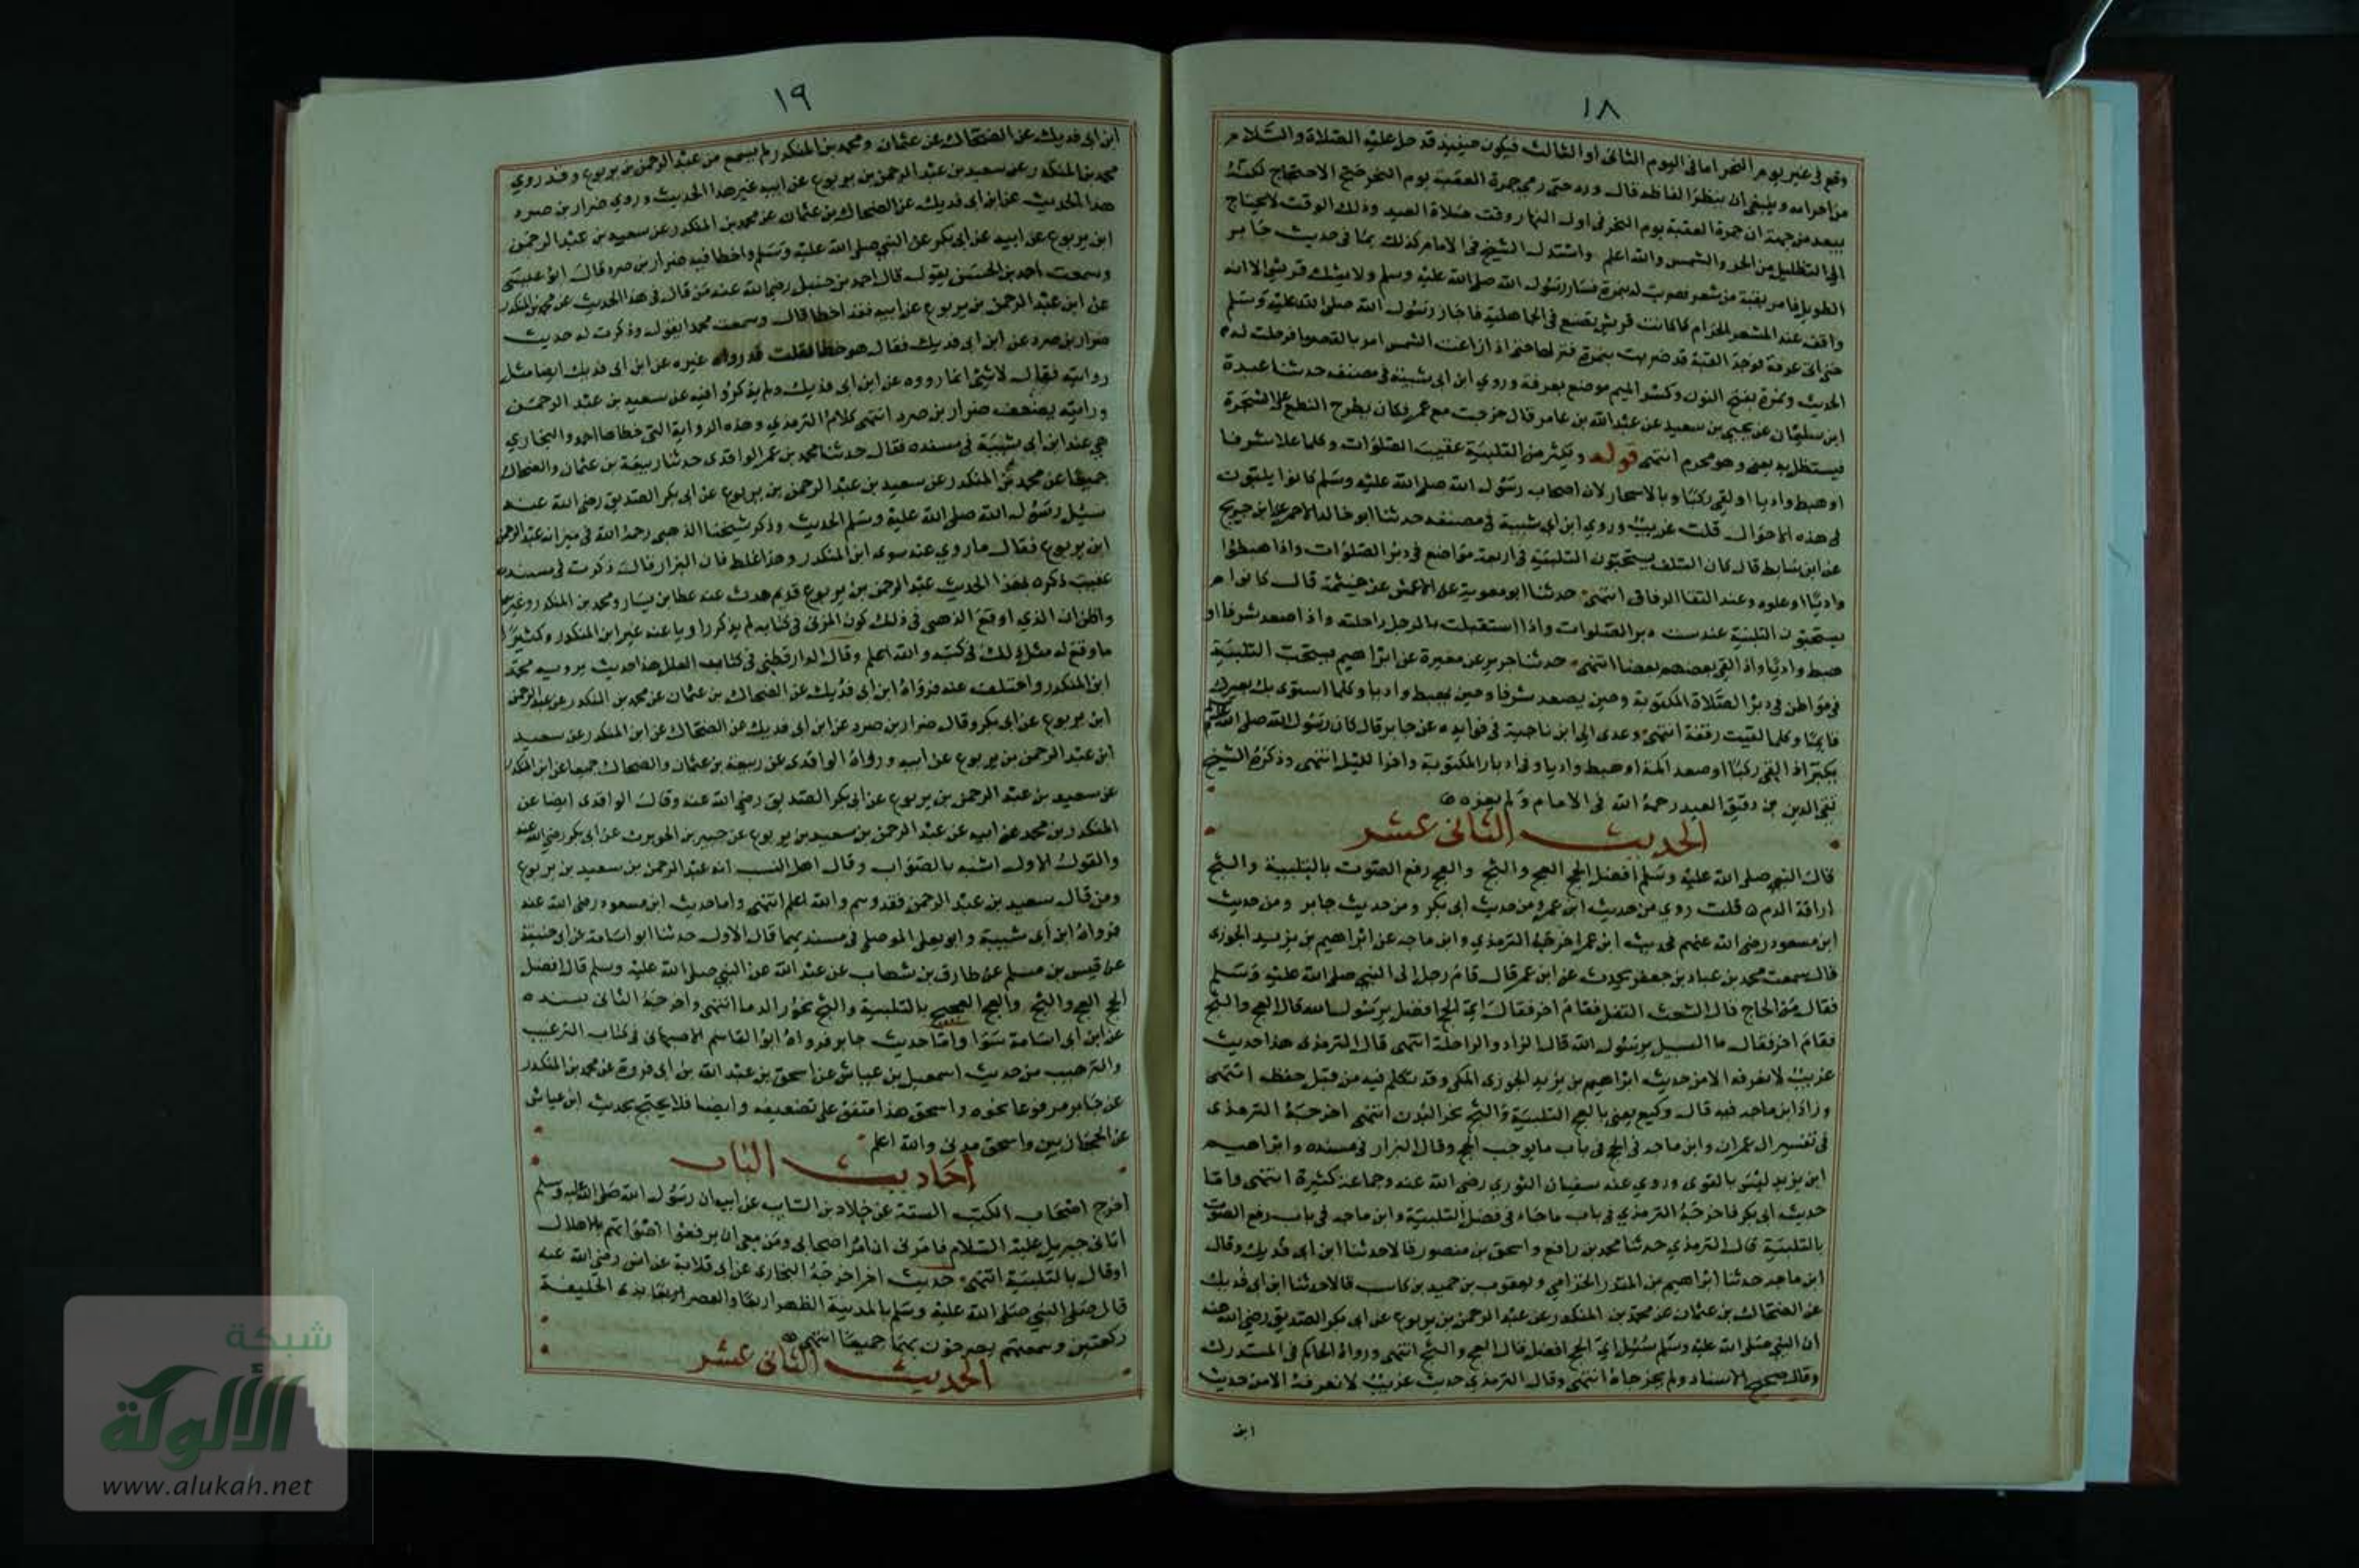 ١٨
وقع في غير يوم النحر اما في اليوم الثاني أو الثالث فيكون حينئذ قد حل عليه الصلاة والسلام
من احرامه وينبغي ان ينظر الفاظه فال ورد حتى رمى جمرة العقبة يوم النحر صح الاحتجاج لكنه
يبعد من جهة ان جمرة العقبة يوم النحر في اول النهار وقت صلاة العيد وذلك الوقت لا يحتاج
الى التظليل من الحر والشمس والله اعلم واستدل الشيخ في الامام كذلك بما في حديث جابر
الطويل فامر بقبة من شعر فضربت له بنمرة فسار رسول الله صلى الله عليه وسلم ولا يشك قريش الا انه
واقف عند المشعر الحرام كما كانت قريش يصنع في الجاهلية فاجاز رسول الله صلى الله عليه وسلم
حتى اتى عرفة فوجد القبة قد ضربت بنمرة فنزلها حتى اذا زاغت الشمس امر بالقصوا فرحلت له
الحديث ونمرة بفتح النون وكسر الميم موضع بعرفة وروي ابن ابي شيبة في مصنفه حدثنا عبدة
ابن سليمان عن يحيى بن سعيد عن عبد الله بن عامر قال خرجت مع عمر فكان يطرح النطع على الشجرة
فيستظل به يعني وهو محرم انتهى قوله ويكثر من التلبية عقيب الصلوات وكلما علا شرفا
او هبط واديا او لقى ركبا وبالاسحار لان اصحاب رسول الله صلى الله عليه وسلم كانوا يلبون
في هذه الاحوال قلت غريب وروي ابن ابي شيبة في مصنفه حدثنا ابو خالد الاحمر عن ابن جريج
عن ابن سابط قال كان السلف يستحبون التلبية في اربعة مواضع في دبر الصلوات واذا هبطوا
واديا او علوه وعند التقا الرفاق انتهى حدثنا ابو معوية عن الاعمش عن خيثمة قال كانوا
يستحبون التلبية عند ست دبر الصلوات واذا استقبلت بالرجل راحلته واذا صعد شرفا او
هبط واديا واذا لقي بعضهم بعضا انتهى حدثنا جرير عن مغيرة عن ابراهيم يستحب التلبية
في مواطن في دبر الصلاة المكتوبة وحين يصعد شرفا وحين يهبط واديا وكلما استوى بك بعيرك
قايما وكلما لقيت رفقة انتهى وعدى الى ابن ناجية في فوايده عن جابر قال كان رسول الله صلى الله عليه وسلم
يكبر اذا لقى ركبا او صعد اكمة او هبط واديا وفي ادبار المكتوبة واخر الليل انتهى وذكره الشيخ
تقي الدين بن دقيق العيد رحمه الله في الامام ولم يعزه
الحديث الثاني عشر
قال النبي صلى الله عليه وسلم افضل الحج العج والثج والعج رفع الصوت بالتلبية والثج
اراقة الدم قلت روي من حديث ابن عمر ومن حديث ابي بكر ومن حديث جابر ومن حديث
ابن مسعود رضي الله عنهم فحديث ابن عمر اخرجه الترمذي وابن ماجه عن ابراهيم بن يزيد الجوزى
قال سمعت محمد بن عباد بن جعفر يحدث عن ابن عمر قال قام رجل الى النبي صلى الله عليه وسلم
فقال من الحاج قال الشعث التفل فقام اخر فقال اي الحج افضل يرسول الله قال العج والثج
فقام اخر فقال ما السبيل يرسول الله قال الزاد والراحلة انتهى قال الترمذى هذا حديث
غريب لا نعرفه الا من حديث ابراهيم بن يزيد الجوزى المكي وقد تكلم فيه من قبل حفظه انتهى
وزاد ابن ماجه فيه قال وكيع يعني بالعج التلبية والثج نحر البدن انتهى اخرجه الترمذى
في تفسير ال عمران وابن ماجه في الحج في باب ما يوجب الحج وقال البزار في مسنده وابراهيم
ابن يزيد ليس بالقوى وروي عنه سفيان الثوري رضي الله عنه وجماعة كثيرة انتهى واما
حديث ابي بكر فاخرجه الترمذي في باب ما جاء في فضل التلبية وابن ماجه في باب رفع الصوت
بالتلبية قال الترمذي حدثنا محمد بن رافع واسحق بن منصور قالا حدثنا ابن ابي فديك وقال
ابن ماجه حدثنا ابراهيم بن المنذر الحزامي ويعقوب بن حميد بن كاسب قالا حدثنا ابن ابي فديك
عن الضحاك بن عثمان عن محمد بن المنكدر عن عبد الرحمن بن يربوع عن ابي بكر الصديق رضي الله عنه
ان النبي صلى الله عليه وسلم سئل اي الحج افضل قال العج والثج انتهى ورواه الحاكم في المستدرك
وقال صحيح الاسناد ولم يخرجاه انتهى وقال الترمذي حديث غريب لا نعرفه الا من حديث
ابن
١٩
ابن ابي فديك عن الضحاك عن عثمان ومحمد بن المنكدر لم يسمع من عبد الرحمن بن يربوع وقد روي
محمد بن المنكدر عن سعيد بن عبد الرحمن بن يربوع عن ابيه غير هذا الحديث وروي ضرار بن صرد
هذا الحديث عن ابن ابي فديك عن الضحاك بن عثمان عن محمد بن المنكدر عن سعيد بن عبد الرحمن
ابن يربوع عن ابيه عن ابي بكر عن النبي صلى الله عليه وسلم واخطا فيه ضرار بن صرد قال ابو عيسى
وسمعت احمد بن الحسن يقول قال احمد بن حنبل رضي الله عنه من قال في هذا الحديث عن محمد بن المنكدر
عن ابن عبد الرحمن بن يربوع عن ابيه فقد اخطا قال وسمعت محمدا يقول وذكرت له حديث
ضرار بن صرد عن ابن ابي فديك فقال هو خطا فقلت قد رواه غيره عن ابن ابي فديك ايضا مثل
روايته فقال لا شئ انما رووه عن ابن ابي فديك ولم يذكروا فيه عن سعيد بن عبد الرحمن
ورايته يضعف ضرار بن صرد انتهى كلام الترمذي وهذه الرواية التي خطاها احمد والبخاري
هي عند ابن ابي شيبة في مسنده فقال حدثنا محمد بن عمر الواقدى حدثنا ربيعة بن عثمان والضحاك
جميعا عن محمد بن المنكدر عن سعيد بن عبد الرحمن بن يربوع عن ابي بكر الصديق رضي الله عنه
سيل رسول الله صلى الله عليه وسلم الحديث وذكر شيخنا الذهبي رحمه الله في ميزانه عبد الرحمن
ابن يربوع فقال ما روي عنه سوى ابن المنكدر وهذا غلط فان البزار قال ذكرت في مسنده
عقيب ذكره لهذا الحديث عبد الرحمن بن يربوع قديم حدث عنه عطا بن يسار ومحمد بن المنكدر وغيرهما
واظن ان الذي اوقع الذهبي في ذلك كون المزي في كتابه لم يذكر راويا عنه غير ابن المنكدر وكثيرا
ما وقع له مثل ذلك في كتبه والله اعلم وقال الدارقطني في كتاب العلل هذا حديث يرويه محمد
ابن المنكدر واختلف عنه فرواه ابن ابي فديك عن الضحاك بن عثمان عن محمد بن المنكدر عن عبد الرحمن
ابن يربوع عن ابي بكر وقال ضرار بن صرد عن ابن ابي فديك عن الضحاك عن ابن المنكدر عن سعيد
ابن عبد الرحمن بن يربوع عن ابيه ورواه الواقدى عن ربيعة بن عثمان والضحاك جميعا عن ابن المنكدر
عن سعيد بن عبد الرحمن بن يربوع عن ابي بكر الصديق رضي الله عنه وقال الواقدى ايضا عن
المنكدر بن محمد عن ابيه عن عبد الرحمن بن سعيد بن يربوع عن جبير بن الحويرث عن ابي بكر رضي الله عنه
والقول الاول اشبه بالصواب وقال اهل النسب انه عبد الرحمن بن سعيد بن يربوع
ومن قال سعيد بن عبد الرحمن فقد وهم والله اعلم انتهى واما حديث ابن مسعود رضي الله عنه
فرواه ابن أبي شيبة وابو يعلى الموصلي في مسنديهما قال الاول حدثنا ابو اسامة عن ابي حنيفة
عن قيس بن مسلم عن طارق بن شهاب عن عبد الله عن النبي صلى الله عليه وسلم قال افضل
الحج العج والثج والعج العجيج بالتلبية والثج نحور الدما انتهى واخرجه الثاني بسنده
عن ابن ابي اسامة سوا واما حديث جابر فرواه ابو القاسم الاصبهاني في كتاب الترغيب
والترهيب من حديث اسمعيل بن عياش عن اسحق بن عبد الله بن ابي فروة عن محمد بن المنكدر
عن جابر مرفوعا نحوه واسحق هذا متفق على تضعيفه وايضا فلا يحتج بحديث ابن عياش
عن الحجازيين واسحق مدني والله اعلم
أحاديث الباب
اخرج اصحاب الكتب الستة عن خلاد بن السايب عن ابيه ان رسول الله صلى الله عليه وسلم
اتاني جبريل عليه السلام فامرني ان امر اصحابي ومن معي ان يرفعوا اصواتهم بالاهلال
اوقال بالتلبية انتهى حديث اخر اخرجه البخارى عن ابي قلابة عن انس رضي الله عنه
قال صلى النبي صلى الله عليه وسلم بالمدينة الظهر اربعا والعصر اربعا بذى الحليفة
ركعتين وسمعتهم يصرخون بهما جميعا انتهى
الحديث الثاني عشر
شبكة
الألوكة
www.alukah.net